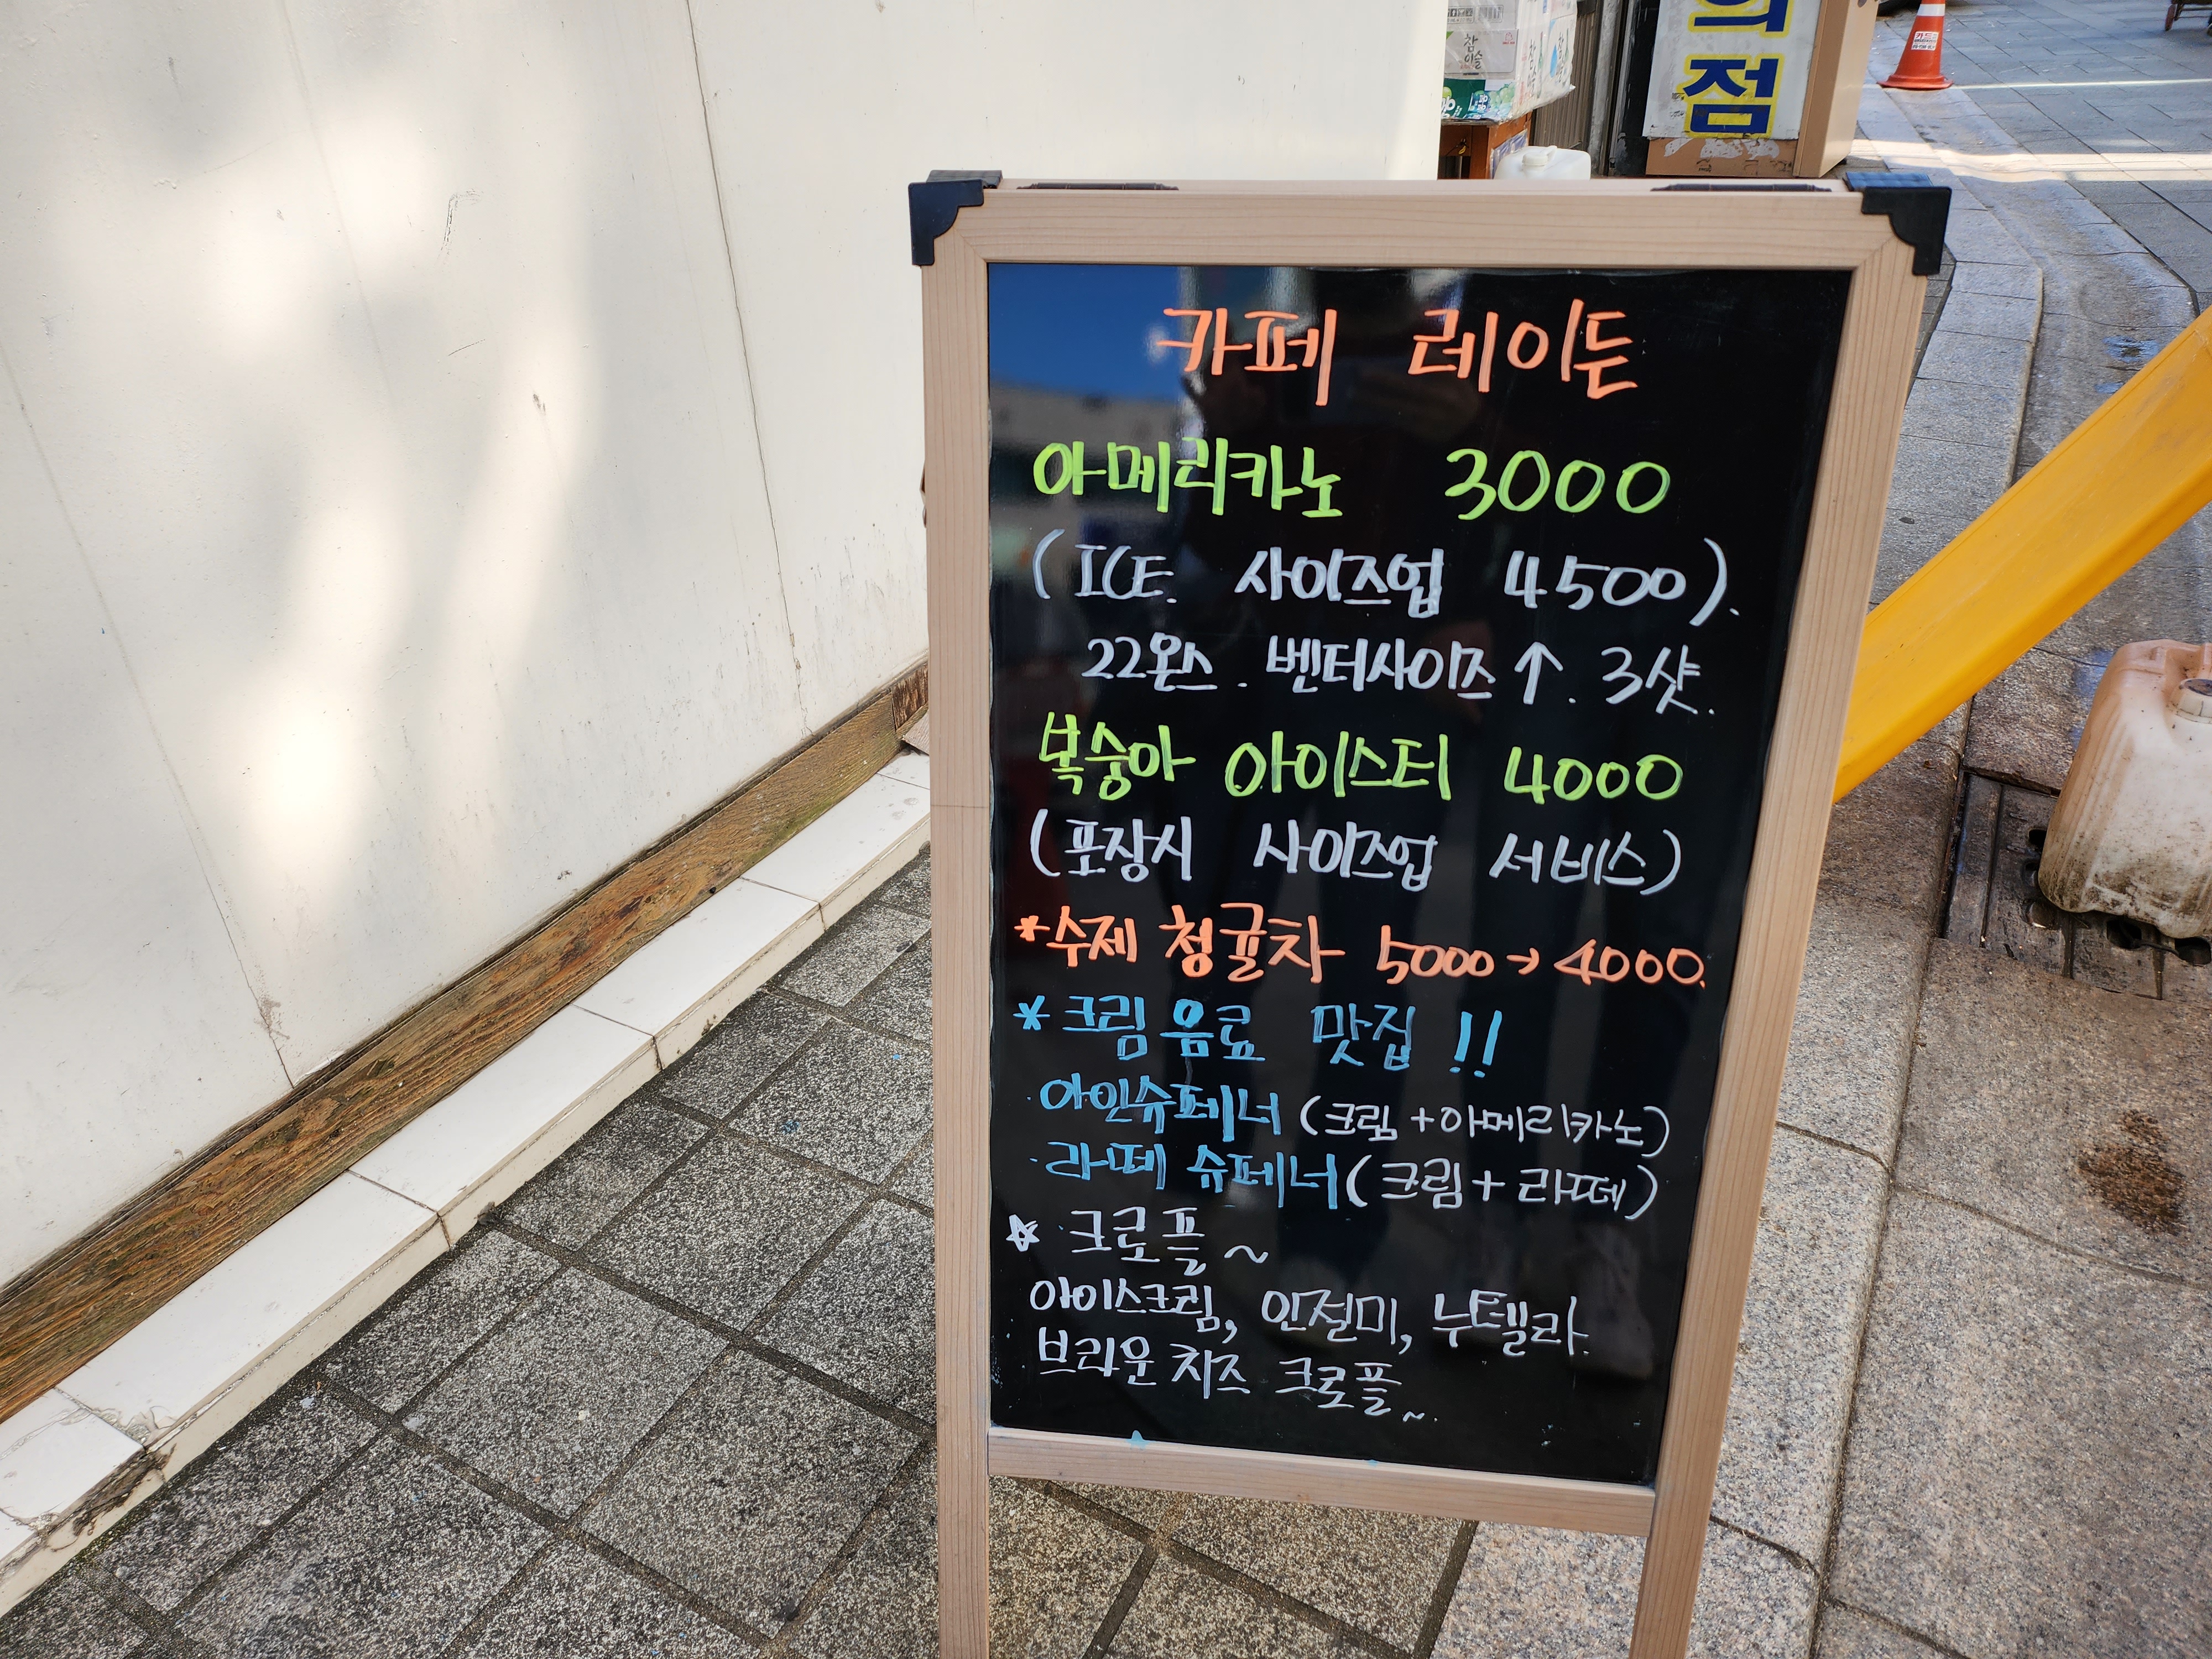 의
점
참
이슬
카페 레이든
아메리카노 3000
(ICE 사이즈업 4500).
22온스. 벤티사이즈↑. 3샷.
복숭아 아이스티 4000
(포장시 사이즈업 서비스)
*수제 청귤차 5000→4000.
*크림음료 맛집!!
·아인슈페너 (크림+아메리카노)
·라떼 슈페너 (크림+라떼)
☆ 크로플~
아이스크림, 인절미, 누텔라.
브라운치즈 크로플~.